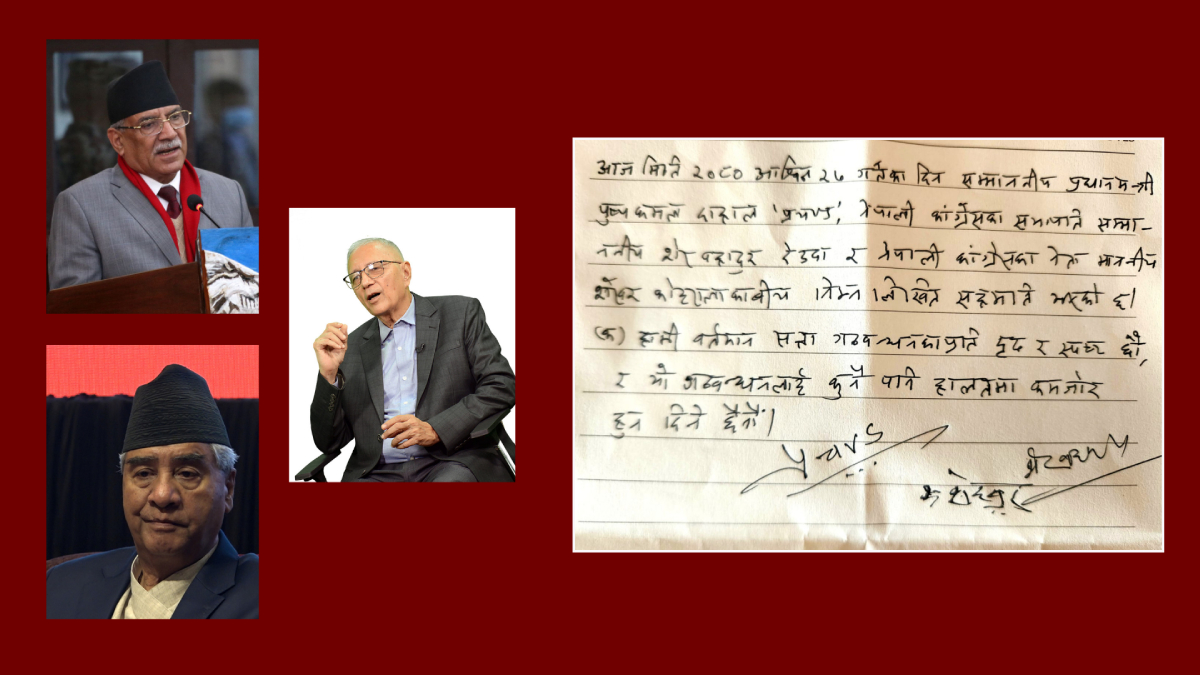 आज मिति २०८० आश्विन २६ गतेका दिन सम्माननीय प्रधानमन्त्री
पुष्पकमल दाहाल 'प्रचण्ड', नेपाली कांग्रेसका सभापति सम्मा-
ननीय शेर बहादुर देउवा र नेपाली कांग्रेसका नेता माननीय
शेखर कोइरालाका बीच निम्न लिखित सहमति भएको छ।
(क) हामी वर्तमान सत्ता गठबन्धनका प्रति दृढ र स्पष्ट छौं,
र यो गठबन्धनलाई कुनै पनि हालतमा कमजोर
हुन दिने छैनौं।